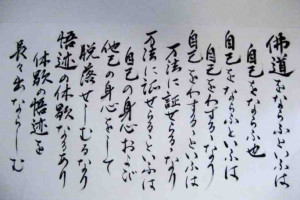 佛道をならふといふは
自己をならふ也
自己をならふといふは
自己をわするゝなり
自己をわするゝといふは
万法に証せらるゝなり
万法に証せらるゝといふは
自己の身心および
他己の身心をして
脱落せしむるなり
悟迹の休歇なるあり
休歇の悟迹を
長々出ならしむ